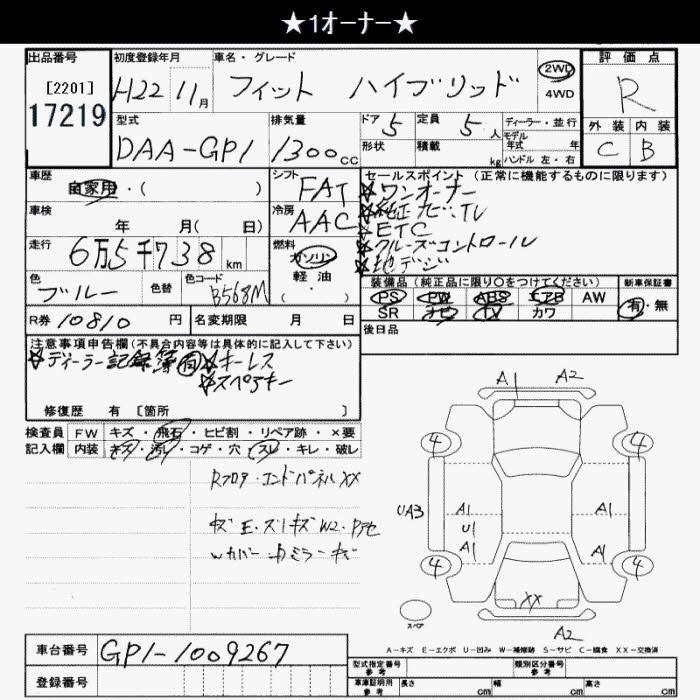 ★1オーナー★
出品番号
[2201]
17219
初度登録年月
H22 11月
車名・グレード
フィット ハイブリッド
2WD
4WD
評価点
R
外装 内装
C B
型式
DAA-GP1
排気量
1300cc
ドア 5
定員 5人
形状
積載 kg
ディーラー・並行
モデル年式 年
ハンドル 左・右
車歴
自家用・( )
シフト
FAT
セールスポイント(正常に機能するものに限ります)
☆ワンオーナー
☆純正ナビTV
☆ETC
☆クルーズコントロール
☆地デジ
車検
年 月( 日)
冷房
AAC
走行
6万5千738km
燃料
ガソリン
軽・油
( ・ )
色
ブルー
色替
色コード
B568M
装備品(純正品に限り○をつけてください)
PS PW ABS エアB AW
SR ナビ TV カワ
新車保証書
有・無
R券 10810 円
名変期限 月 日
後日品
注意事項申告欄(不具合内容等は具体的に記入して下さい)
☆ディーラー記録簿有☆キーレス
☆スペアキー
修復歴 有 [箇所 ]
検査員 FW キズ・飛石・ヒビ割・リペア跡・×要
記入欄 内装 キズ・汚レ・コゲ・穴・スレ・キレ・破レ
Rフロア・エンドパネルXX
A1 A2
4 4
UA3 A1 A1
U1
A1 A1
4 4
XX
スペア
A2
A-キズ E-エクボ U-凹み W-補修跡 S-サビ C-腐食 XX-交換済
車台番号
GP1-1009267
登録番号
型式指定番号 参考
類別区分番号 参考
車庫証明用 参考
長さ cm 幅 cm 高さ cm